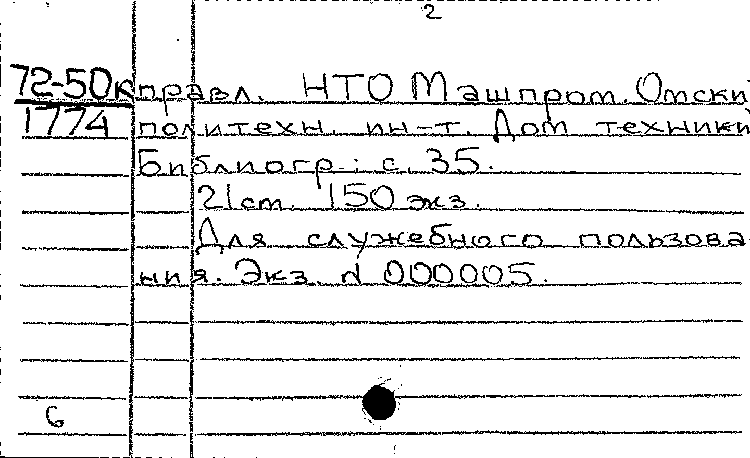 2
72-50к правл. НТО Машпром. Омски
1774 политехн. ин-т. Дом техники
Библиогр.: с. 35.
21 см. 150 экз.
Для служебного пользова
ния. Экз. N 000005.
6